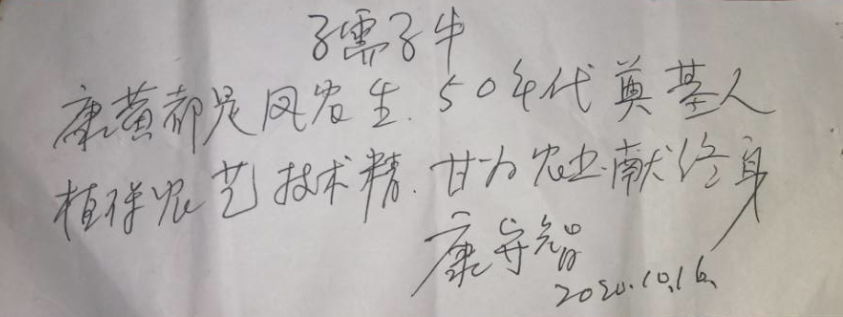 孺子牛
康黄都是凤农生.50年代奠基人
植保农艺技术精.甘为农业献终身
康守智
2020.10.16.